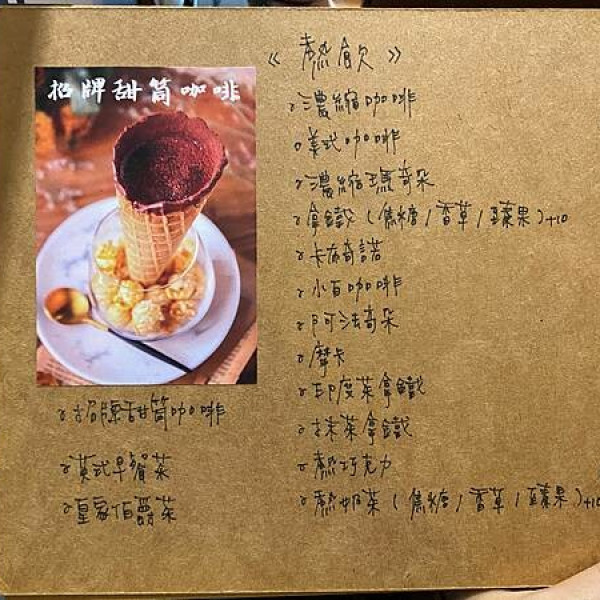 招牌甜筒咖啡
《熱飲》
濃縮咖啡
美式咖啡
濃縮瑪奇朵
拿鐵（焦糖/香草/榛果）+10
卡布奇諾
小白咖啡
阿法奇朵
摩卡
印度茶拿鐵
抹茶拿鐵
熱巧克力
熱奶茶（焦糖/香草/榛果）+10
招牌甜筒咖啡
英式早餐茶
皇家伯爵茶